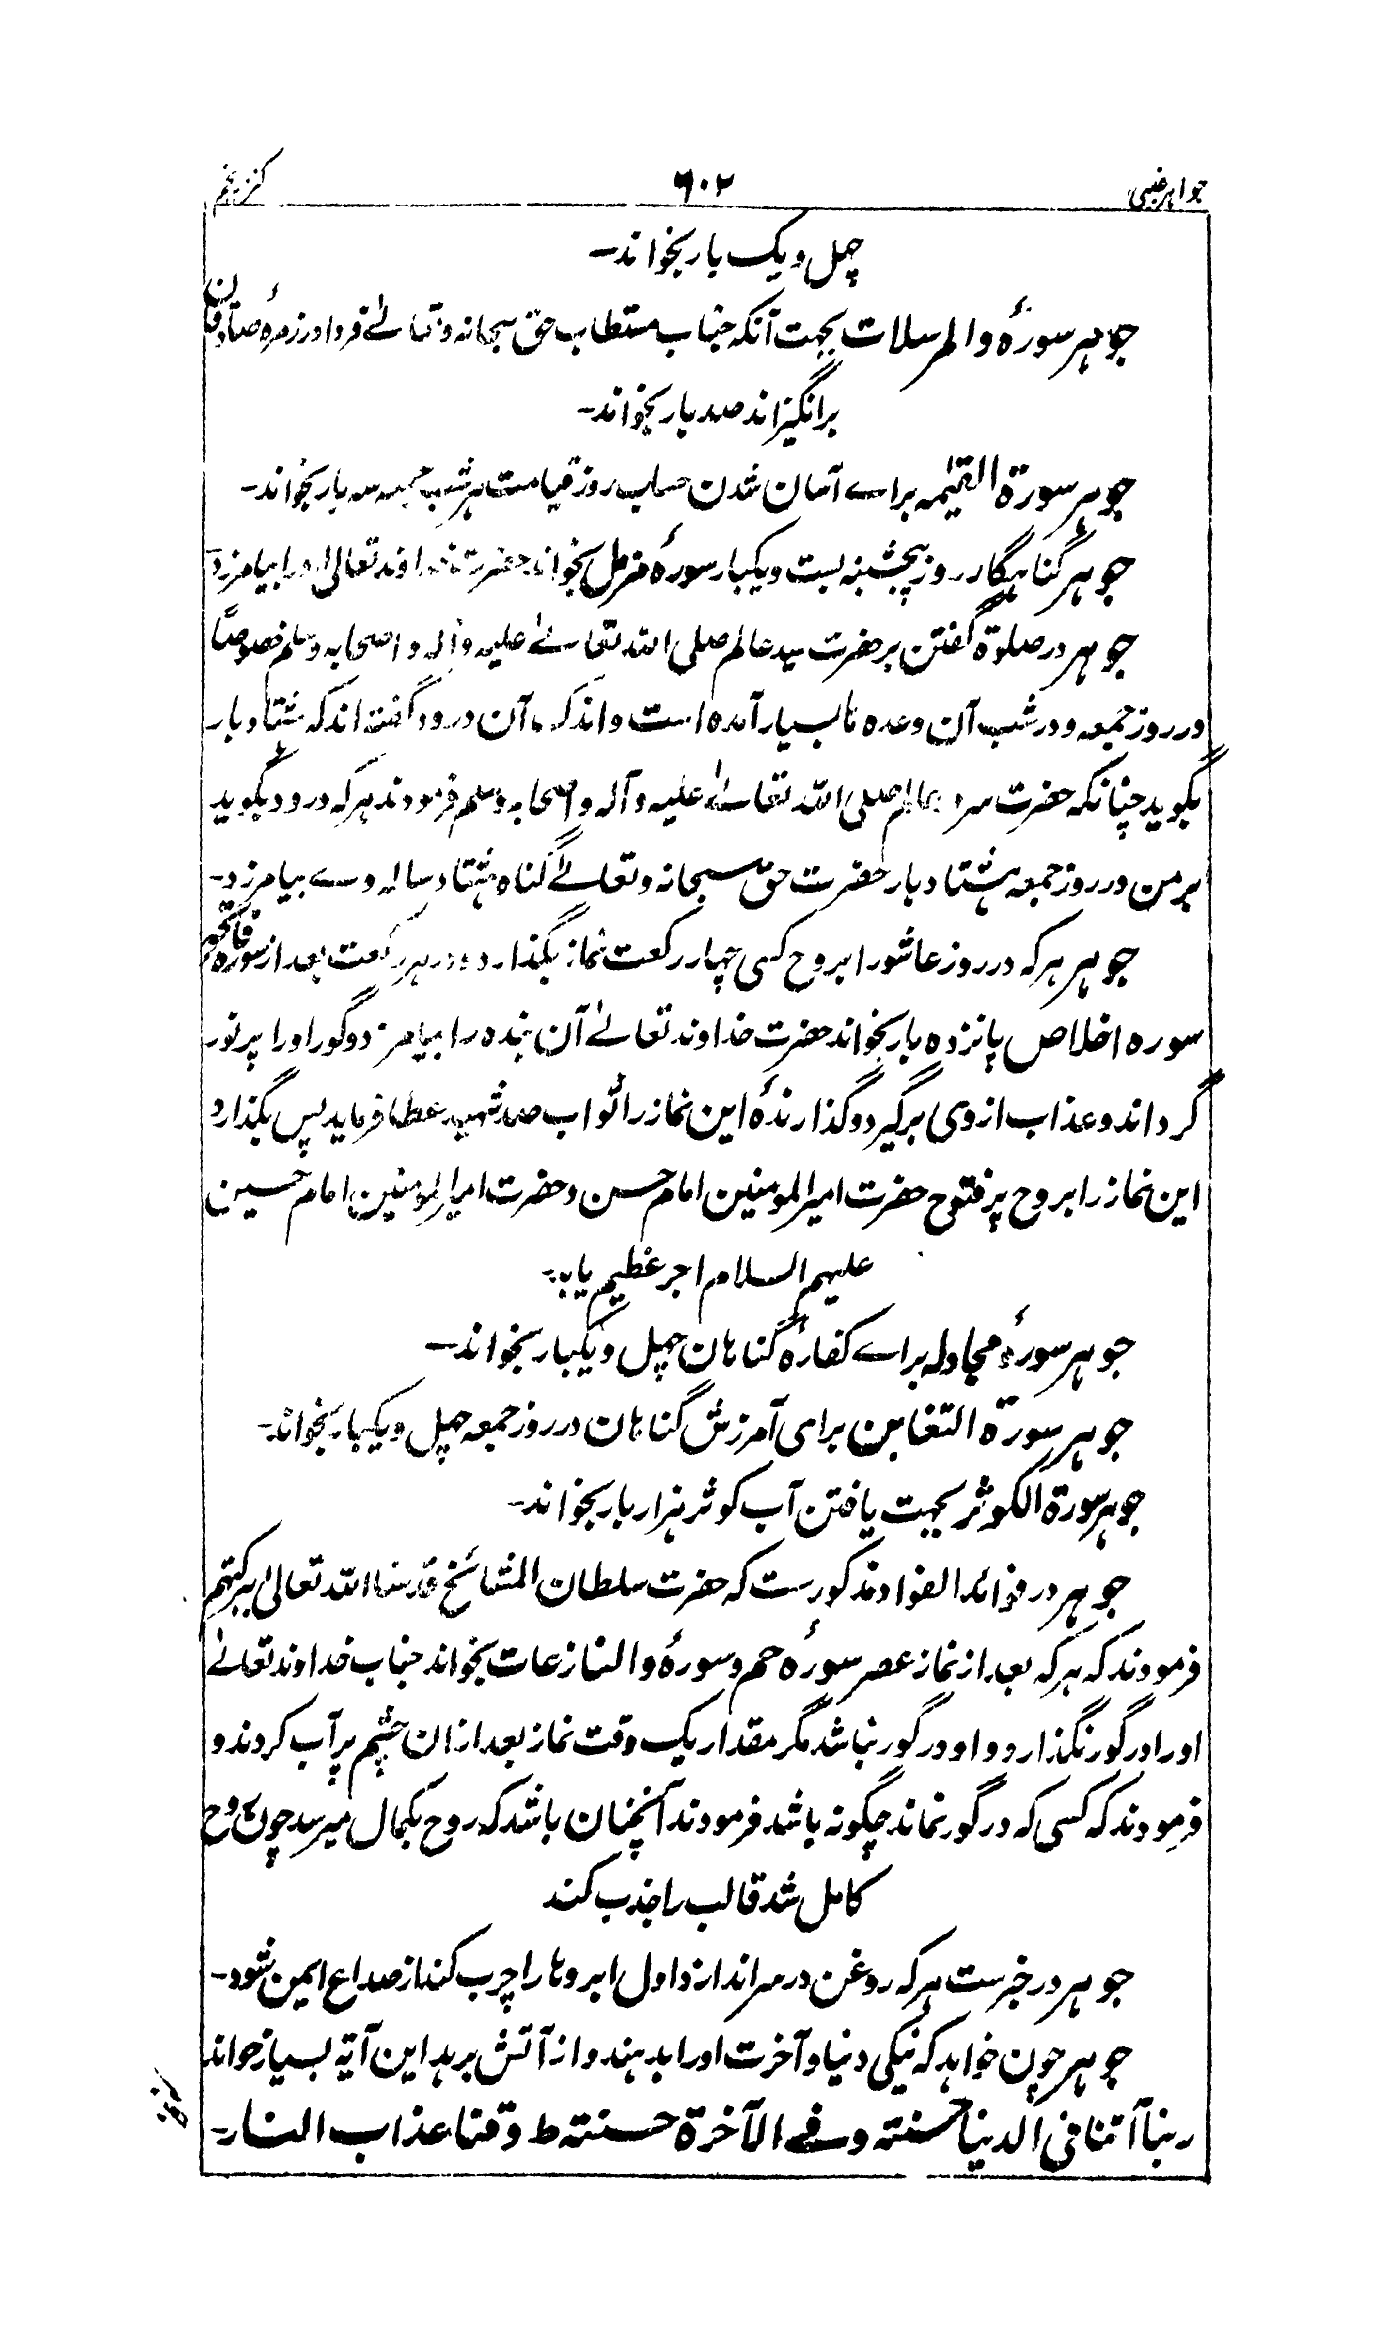 جواہر غیبی ۶۰۲ کنز پنجم
چہل و یک بار بخواند۔
جوہر سورۂ والمرسلات بجہت آنکہ جناب مستطاب حق سبحانہ و تعالیٰ فردا در زمرۂ صادقان
برانگیزاند صد بار بخواند۔
جوہر سورۃ القیٰمہ براے آسان شدن حساب روز قیامت ہر شب جمعہ سہ بار بخواند۔
جوہر گناہگار روز پنجشنبہ بست و یکبار سورۂ مزمل بخواند حضرت خداوند تعالیٰ اورا بیامرزد
جوہر در صلوٰۃ گفتن بر حضرت سید عالم صلی اللہ تعالیٰ علیہ و آلہ و اصحابہ وسلم خصوصاً
در روز جمعہ و در شب آن وعدہ ہا بسیار آمدہ است و اندکے آن درود گفتہ اند کہ ہشتاد بار
بگوید چنانکہ حضرت سرور عالم صلی اللہ تعالیٰ علیہ و آلہ و اصحابہ وسلم فرمودند ہر کہ درود بگوید
بر من در روز جمعہ ہشتاد بار حضرت حق سبحانہ و تعالےٰ گناہ ہشتاد سالہ وے بیامرزد۔
جوہر ہر کہ در روز عاشورا بروح کسی چہار رکعت نماز بگذارد و در ہر رکعت بعد از سورۂ فاتحہ
سورہ اخلاص پانزدہ بار بخواند حضرت خداوند تعالےٰ آن بندہ را بیامرزد و گور اورا پر نور
گرداند و عذاب از وی برگیرد و گذارندۂ این نماز را ثواب صد شہید عطا فرماید پس بگذارد
این نماز را بروح پر فتوح حضرت امیر المومنین امام حسن و حضرت امیر المومنین امام حسین
علیہم السلام اجر عظیم یابد۔
جوہر سورۂ مجادلہ براے کفارۂ گناہان چہل و یکبار بخواند۔
جوہر سورۃ التغابن برای آمرزش گناہان در روز جمعہ چہل و یکبار بخواند۔
جوہر سورۃ الکوثر بجہت یافتن آب کوثر ہزار بار بخواند۔
جوہر در فوائد الفواد مذکورست کہ حضرت سلطان المشائخ قدسنا اللہ تعالیٰ ببرکتہم
فرمودند کہ ہر کہ بعد از نماز عصر سورۂ حم و سورۂ والنازعات بخواند جناب خداوند تعالےٰ
اورا در گور نگذارد و او در گور نباشد مگر مقدار یک وقت نماز بعد ازان چشم پر آب کردند و
فرمودند کہ کسی کہ در گور نماند چگونہ باشد فرمودند آنچنان باشد کہ روح بکمال میرسد چون روح
کامل شد قالب را جذب کند
جوہر در خبرست ہر کہ روغن در سر اندازد اول ابروہا را چرب کند از صداع ایمن شود۔
جوہر چون خواہد کہ نیکی دنیا و آخرت اورا بدہند و از آتش برہد این آیۃ بسیار خواند
ربنآ آتنا فی الدنیا حسنتہ وفے الآخرۃ حسنتہ ط وقنا عذاب النار۔